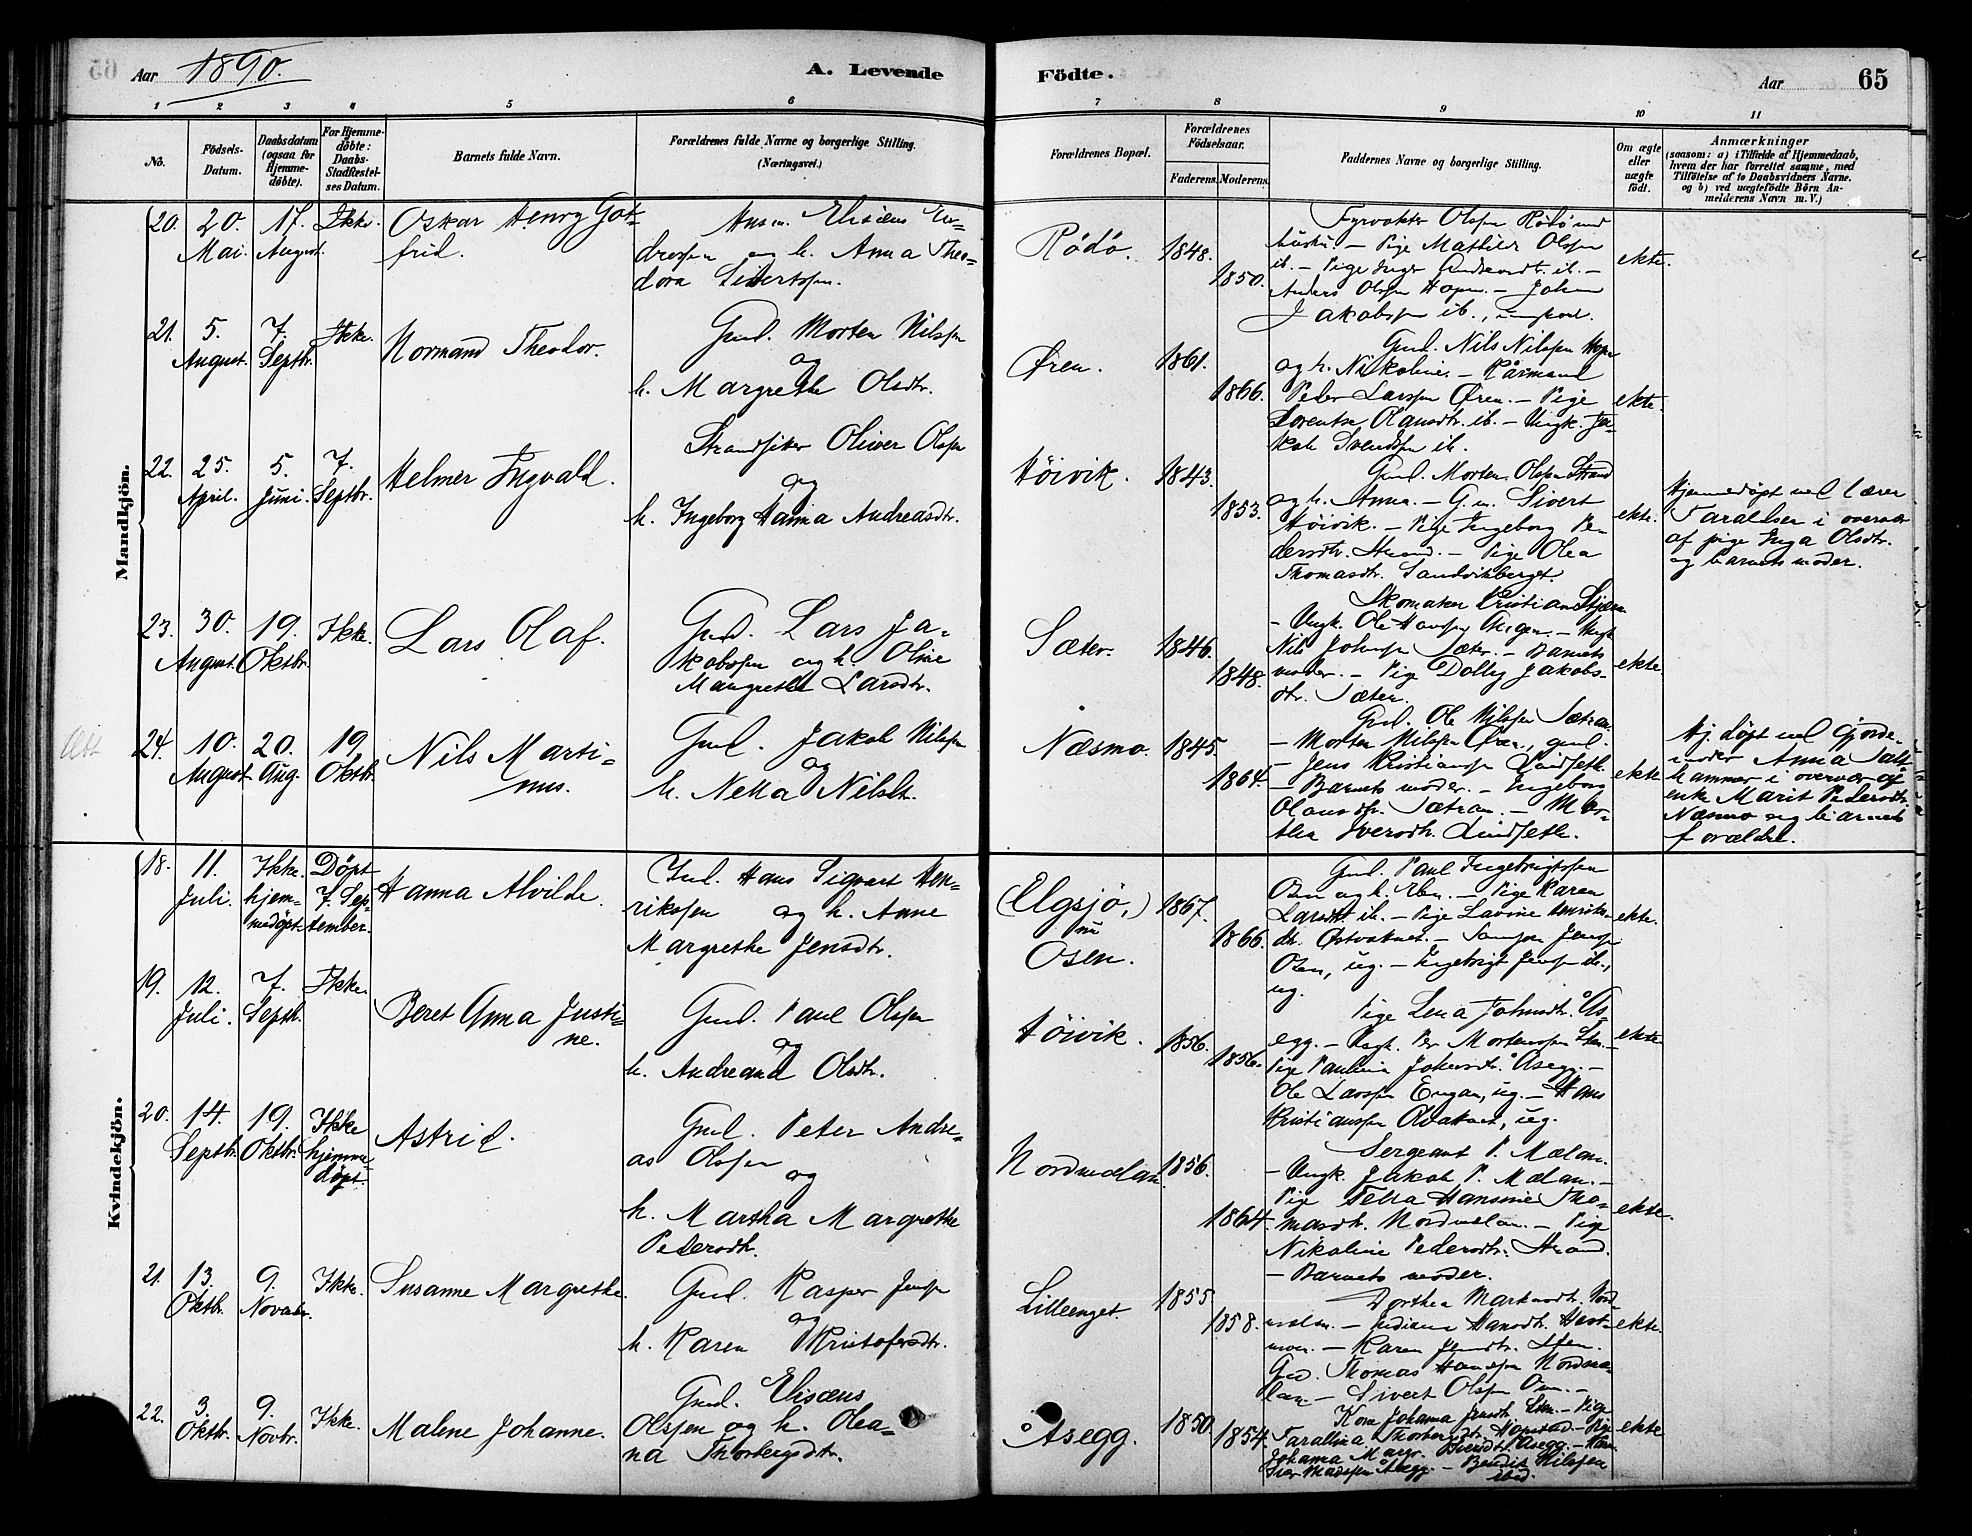 Aar 1890.
A. Levende
Födte.
Aar
65
1 2 3 4 5 6 7 8 9 10 11
No.
Födsels-
Datum.
Daabsdatum
(ogsaa for
Hjemme-
döbte).
For Hjemme-
döbte:
Daabs-
Stadfæstel-
ses Datum.
Barnets fulde Navn.
Forældrenes fulde Navne og borgerlige Stilling.
(Næringsvei.)
Forældrenes Bopæl.
Forældrenes
Födselsaar.
Faderens. Moderens.
Faddernes Navne og borgerlige Stilling.
Om ægte
eller
uægte
födt.
Anmærkninger
(saasom: a) i Tilfælde af Hjemmedaab,
hvem der har forrettet samme, med
Tilföielse af to Daabsvidners Navne,
og b) ved uægtefödte Börn An-
melderens Navn m. V.)
Mandkjön.
20. 20. Mai. 17. August. Ikke.
Oskar Henry Got-
frid.
Elisæus En-
dressen og h. Anna Theo-
dora Sivertsen.
Rödö. 1848. 1850.
Fyrvakter Olsen Rödö med
hustru. – Pige Olsen
ib. – Pige Inger ib. –
Anders Olsen Hopen. – Johan
Jakobsen ib., ungkarl.
ekte.
21. 5. August. 7. Septbr. Ikke.
Normand Theodor.
Gmd. Morten Nilsen
og
h. Margrethe Olsdtr.
Øren. 1861. 1866.
Gmd. Nils Nilssen Hopen
og h. Nikoline. – Kårmand
Peder Larssen Øren. – Pige
Lorentse Olausdtr. ib. – Ungk. Ja-
kob Svendsen ib.
ekte.
22. 25. April. 5. Juni. 7. Septbr.
Helmer Ingvald.
Strandsiter Oliver Olsen
og
h. Ingeborg Hanna Andreasdtr.
Höivik. 1843. 1853.
Gmd. Morten Olssen Strand
og h. Anna. – G.m. Sivert
Höivik. – Pige Ingeborg Pe-
dersdtr. Strand. – Pige Olea
Thomasdtr. Sandvikberget.
ekte.
Hjemmedöpt ved lærer
Faraldsen i overvær
af pige Inga Olsdtr.
og barnets moder.
23. 30. August. 19. Oktbr. Ikke.
Lars Olaf.
Gmd. Lars Ja-
kobssen og h. Oline
Margrethe Larsdtr.
Sæter. 1846. 1848.
Skomaker Kristian
– Ungk. Ole Hansen – Ungk.
Nils Johnsen Sæter. – Barnets
moder. – Pige Dolly Jakobs-
dtr. Sæter.
ekte.
24. 10. August. 20. Aug. 19. Oktbr.
Nils Marti-
nus.
Gmd. Jakob Nilsen
og
h. Netta Nilsdtr.
Næsmo. 1845. 1864.
Gmd. Ole Nilssen Sætran.
– Morten Nilssen Øren, gmd.
– Jens Kristiansen Lindseth.
– Barnets moder. – Ingeborg
Olausdtr. Sætran. –
Iversdtr. Lindseth.
ekte.
Hj. döpt ved Gjorde-
moder Anna
hammer i overvær af
enke Marit Pedersdtr.
Næsmo og barnets
forældre.
Kvindekjön.
18. 11. Juli. Ikke hjem-
medöpt. Döpt
7. Sep-
tember.
Hanna Alvilde.
Ind. Hans Sigvart Hen-
riksen og h. Anne
Margrethe Jensdtr.
(Elgsjö,)
nu
Osen.
1867. 1866.
Gmd. Paul Ingebrigtsen
Osen og h. – Pige Karen
Larsdtr. ib. – Pige Lavine Henriks-
dtr. Østvatnet. – Jensen
Osen, ug. – Ingebrigt Jensen ib.,
ug.
ekte.
19. 12. Juli. 7. Septbr. Ikke.
Beret Anna Justi-
ne.
Gmd. Paul Olsen
og
h. Andreana Olsdtr.
Höivik. 1856. 1856.
Pige Lena Johnsdtr. Ås-
egg. – Ungk. Per Mortenssen Sten. –
Pige Paulina Johnsdtr. Åsegg. –
Ole Larssen Engan, ug. – Hans
Kristianssen ug.
ekte.
20. 14. Septbr. 19. Oktbr. Ikke
hjemme-
döpt.
Astrid.
Gmd. Peter Andre-
as Olssen
og
h. Martha Margrethe
Pedersdtr.
Nordmelan. 1856. 1864.
Sergeant P. Mælan.
– Ungk. Jakob P. Mælan. –
Pige Hansine Tho-
masdtr. Nordmelan. – Pige
Nikoline Pedersdtr. Strand.
– Barnets moder.
ekte.
21. 13. Oktbr. 9. Novembr. Ikke.
Susanne Margrethe.
Gmd. Kasper Jensen
og
h. Karen Kristofersdtr.
Lilleenget. 1855. 1858.
Dorthea Nord-
melan. – Hansdtr.
– Karen Jensdtr. Sten.
Gmd. Thomas Hansen Nordme-
lan. – Sivert Olssen –
ekte.
22. 3. Oktbr. 9. Novbr. Ikke.
Malene Johanne.
Gmd. Elisæus
Olssen og h. Olea-
na Thorbergsdtr.
Åsegg. 1850. 1854.
Kone Johanna Jensdtr. – Pige
Thorbergsdtr. Hopstad. – Pige
Johanna Åsegg. –
Åsegg. – Nilssen
ibid.
ekte.